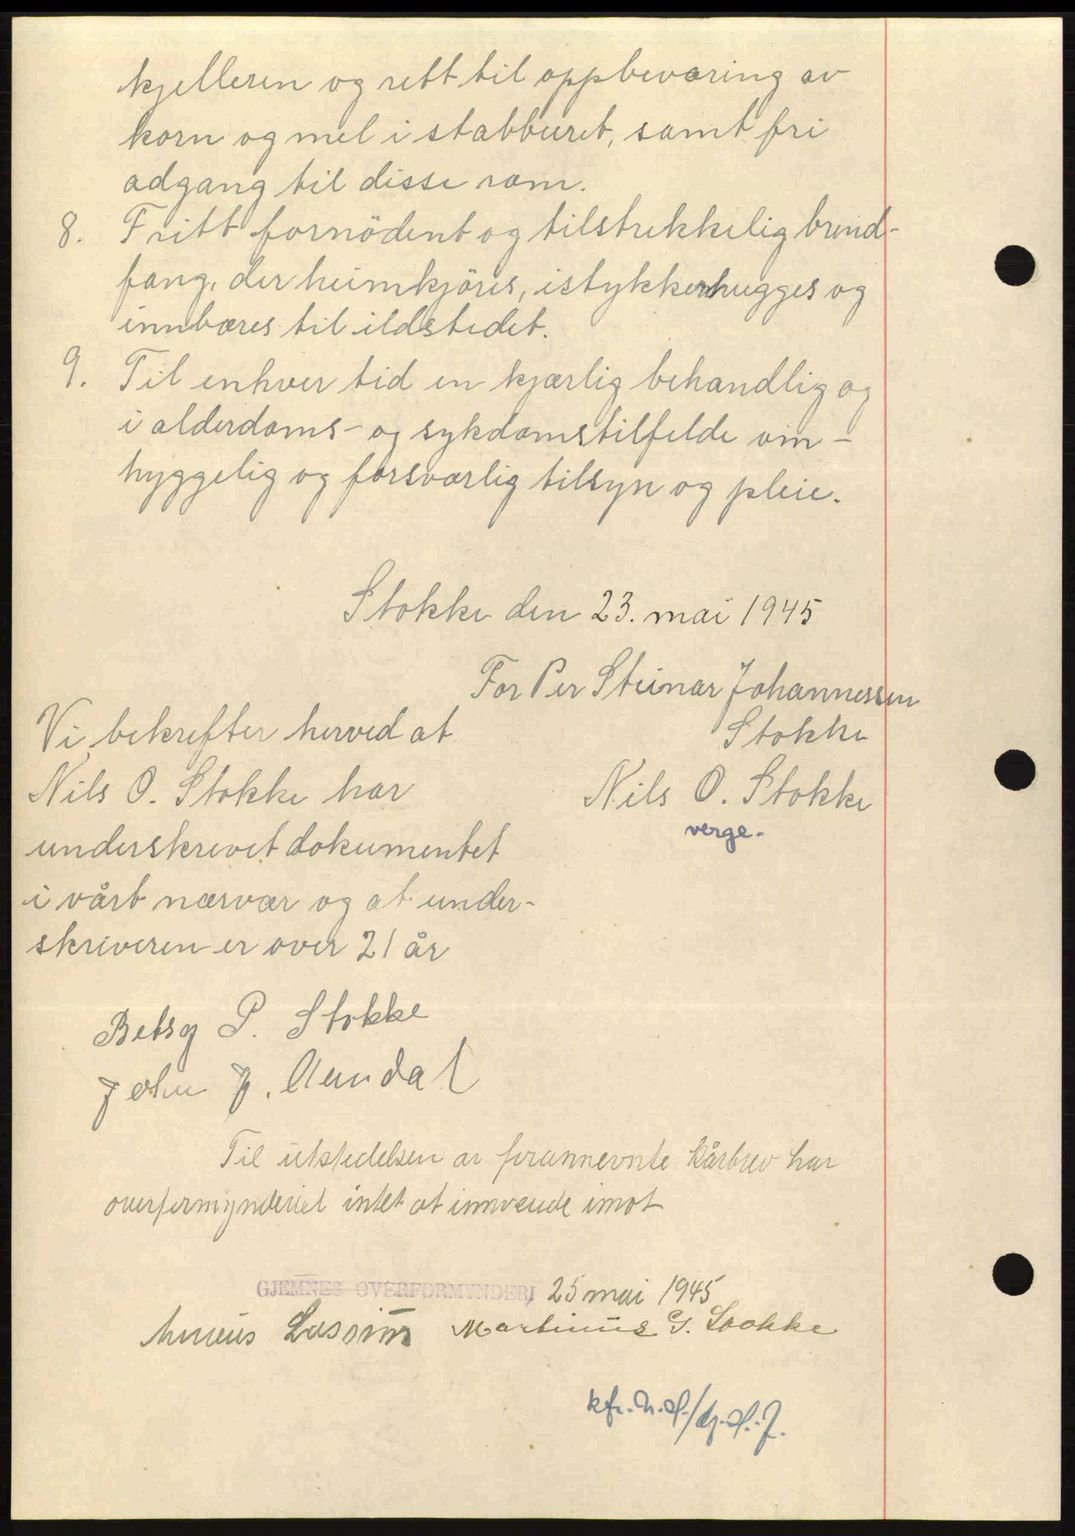 kjelleren og rett til oppbevaring av
korn og mel i stabburet, samt fri
adgang til disse rom.
8. Fritt fornödent og tilstrekkelig brend-
fang, der heimkjöres, istykkerhugges og
innbæres til ildstedet.
9. Til enhver tid en kjærlig behandlig og
i alderdoms- og sykdomstilfelde om-
hyggelig og forsvarlig tilsyn og pleie.
Stokke den 23. mai 1945
For Per Steinar Johannessen
Stokke
Nils O. Stokke
verge.
Vi bekrefter herved at
Nils O. Stokke har
underskrevet dokumentet
i vårt nærvær og at under-
skriveren er over 21 år
Betsy P. Stokke
John J. Aundal
Til utstedelsen av forannevnte kårbrev har
overformynderiet intet at innvende imot
GJEMNES OVERFORMYNDERI 25 mai 1945
Lassim Martinus G. Stokke
kfr.